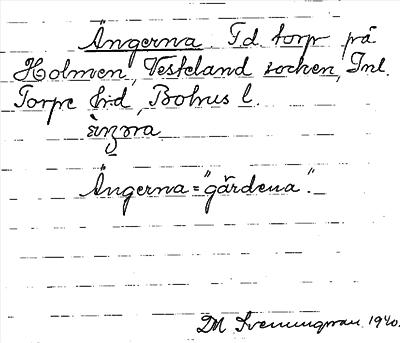 Ängerna. F.d. torp på
Holmen, Vesterland socken, Inl.
Torpe h-d, Bohus l.
Ängerna = "gärdena".
DM Svenungsson 1940.